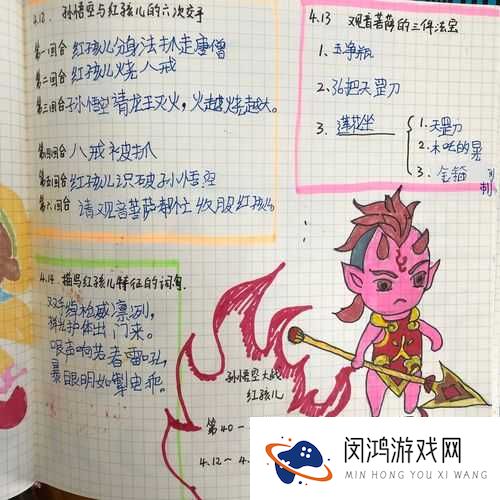 4.12. 孙悟空与红孩儿的六次交手
第一回合 红孩儿分身法抓走唐僧
第二回合 红孩儿烧八戒
第三回合 孙悟空请龙王灭火，火越烧越大。
第四回合 八戒被抓
第五回合 红孩儿识破孙悟空
第六回合 请观音菩萨帮忙收服红孩儿
4.13 观音菩萨的三件法宝
1. 玉净瓶
2. 36把天罡刀
3. 莲花座
1. 天罡刀
2. 木吒的
3. 金箍
刺
4.14. 描写红孩儿特征的词句.
双手
威凛冽,
出门来。
声响若者雷吼,
暴眼明如掣电乖。
孙悟空大战
红孩儿
第40
4.12～4.
闵鸿游戏网
MIN HONG YOU XI WANG